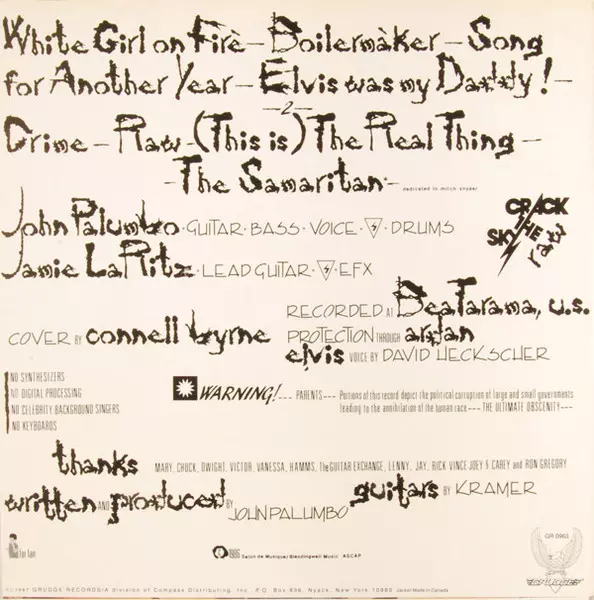 White Girl on Fire – Boilermaker – Song
for Another Year – Elvis was my Daddy! –
– 2 –
Crime – Raw – (This is) The Real Thing –
– The Samaritan –
dedicated to mitch snyder
John Palumbo · GUITAR · BASS · VOICE · DRUMS
CRACK
THE
SKY
raw
Jamie LaRitz · LEAD GUITAR · EFX
RECORDED AT BeaTarama, u.s.
COVER BY connell byrne
PROTECTION THROUGH artan
elvis VOICE BY DAVID HECKSCHER
NO SYNTHESIZERS
NO DIGITAL PROCESSING
NO CELEBRITY BACKGROUND SINGERS
NO KEYBOARDS
WARNING!... PARENTS--- Portions of this record depict the political corruption of large and small governments
leading to the annihilation of the human race --- THE ULTIMATE OBSCENITY---
thanks MARY, CHUCK, DWIGHT, VICTOR, VANESSA, HAMMS, THE GUITAR EXCHANGE, LENNY, JAY, RICK VINCE JOEY & CAREY and RON GREGORY
written AND produced BY JOHN PALUMBO
guitars BY KRAMER
for Ian
1986 Salon de Musique/Blendingwell Music ASCAP
GR 0963
GRUDGE
1987 GRUDGE RECORDS/A division of Compass Distributing, Inc. P.O. Box 836, Nyack, New York 10960 Jacket Made in Canada